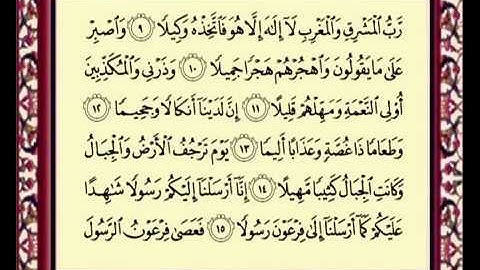 رَّبُّ الْمَشْرِقِ وَالْمَغْرِبِ لَا إِلَٰهَ إِلَّا هُوَ فَاتَّخِذْهُ وَكِيلًا ٩ وَاصْبِرْ
عَلَىٰ مَا يَقُولُونَ وَاهْجُرْهُمْ هَجْرًا جَمِيلًا ١٠ وَذَرْنِي وَالْمُكَذِّبِينَ
أُولِي النَّعْمَةِ وَمَهِّلْهُمْ قَلِيلًا ١١ إِنَّ لَدَيْنَا أَنكَالًا وَجَحِيمًا ١٢
وَطَعَامًا ذَا غُصَّةٍ وَعَذَابًا أَلِيمًا ١٣ يَوْمَ تَرْجُفُ الْأَرْضُ وَالْجِبَالُ
وَكَانَتِ الْجِبَالُ كَثِيبًا مَّهِيلًا ١٤ إِنَّا أَرْسَلْنَا إِلَيْكُمْ رَسُولًا شَاهِدًا
عَلَيْكُمْ كَمَا أَرْسَلْنَا إِلَىٰ فِرْعَوْنَ رَسُولًا ١٥ فَعَصَىٰ فِرْعَوْنُ الرَّسُولَ